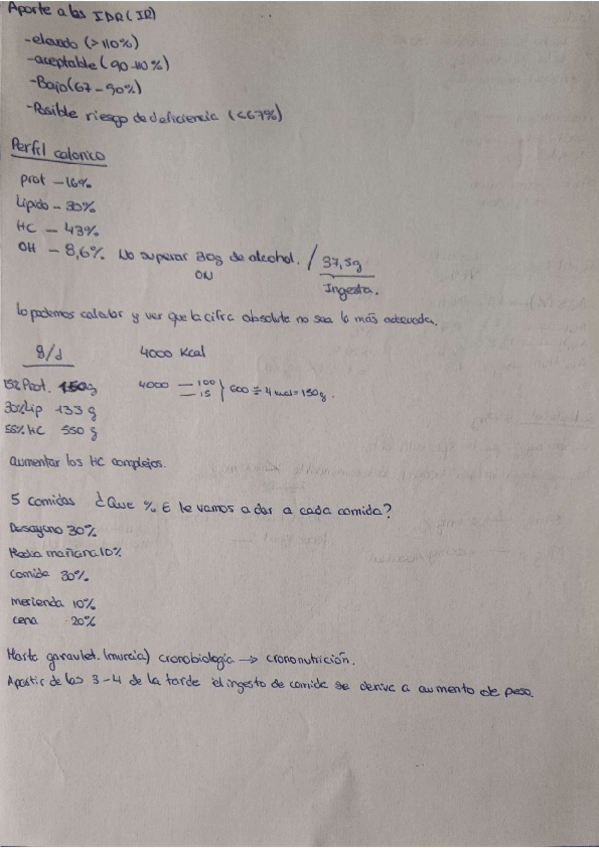 Aporte a las IDR (IR)
-elevado (>110%)
-aceptable (90-110%)
-Bajo (67-90%)
-Posible riesgo de deficiencia (<67%)
Perfil calorico
prot - 16%
Lipido - 30%
HC - 43%
OH - 8,6%. No superar 30g de alcohol. / 37,5g
ON Ingesta.
Lo podemos calcular y ver que la cifra absoluta no sea la más adecuada.
g/d 4000 Kcal
15% Prot. 150g 4000 — 100
— 15 } 600 ÷ 4 kcal = 150g.
30% Lip 133 g
55% HC 550 g
aumentar los HC complejos.
5 comidas ¿Que % E le vamos a dar a cada comida?
Desayuno 30%
Media mañana 10%
Comida 30%
merienda 10%
cena 20%
Marta garaulet. (murcia) cronobiología → crononutrición.
Apartir de las 3-4 de la tarde el ingesto de comida se deriva a aumento de peso.